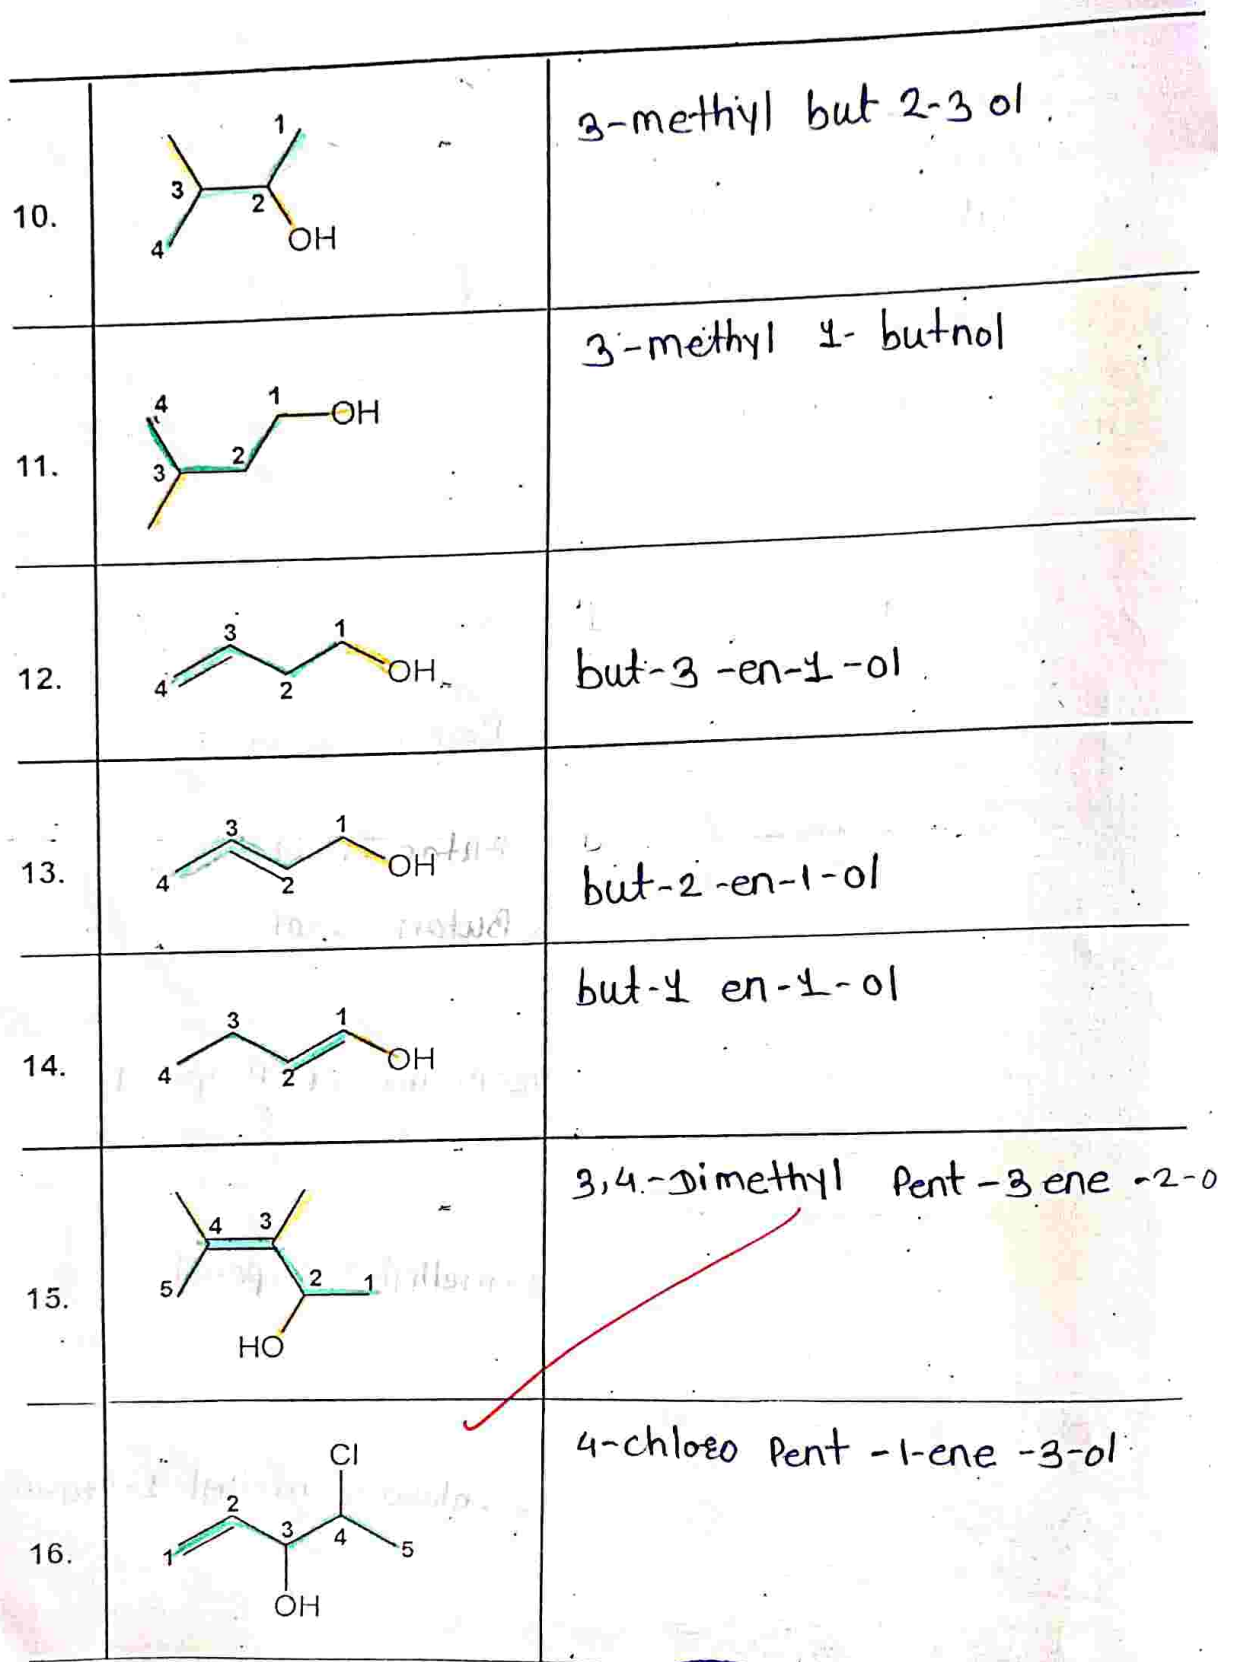 10.
1
3
2
4
OH
3-methiyl but 2-3 ol.
11.
4
1
OH
3
2
3-methyl 1- butnol
12.
3
1
4
2
OH
but-3-en-1-ol.
13.
3
1
4
2
OH
but-2-en-1-ol
14.
3
1
4
2
OH
but-1 en-1-ol
15.
4
3
5
2
1
HO
3,4-Dimethyl Pent-3 ene -2-o
16.
Cl
2
1
3
4
5
OH
4-chloro Pent -1-ene -3-ol